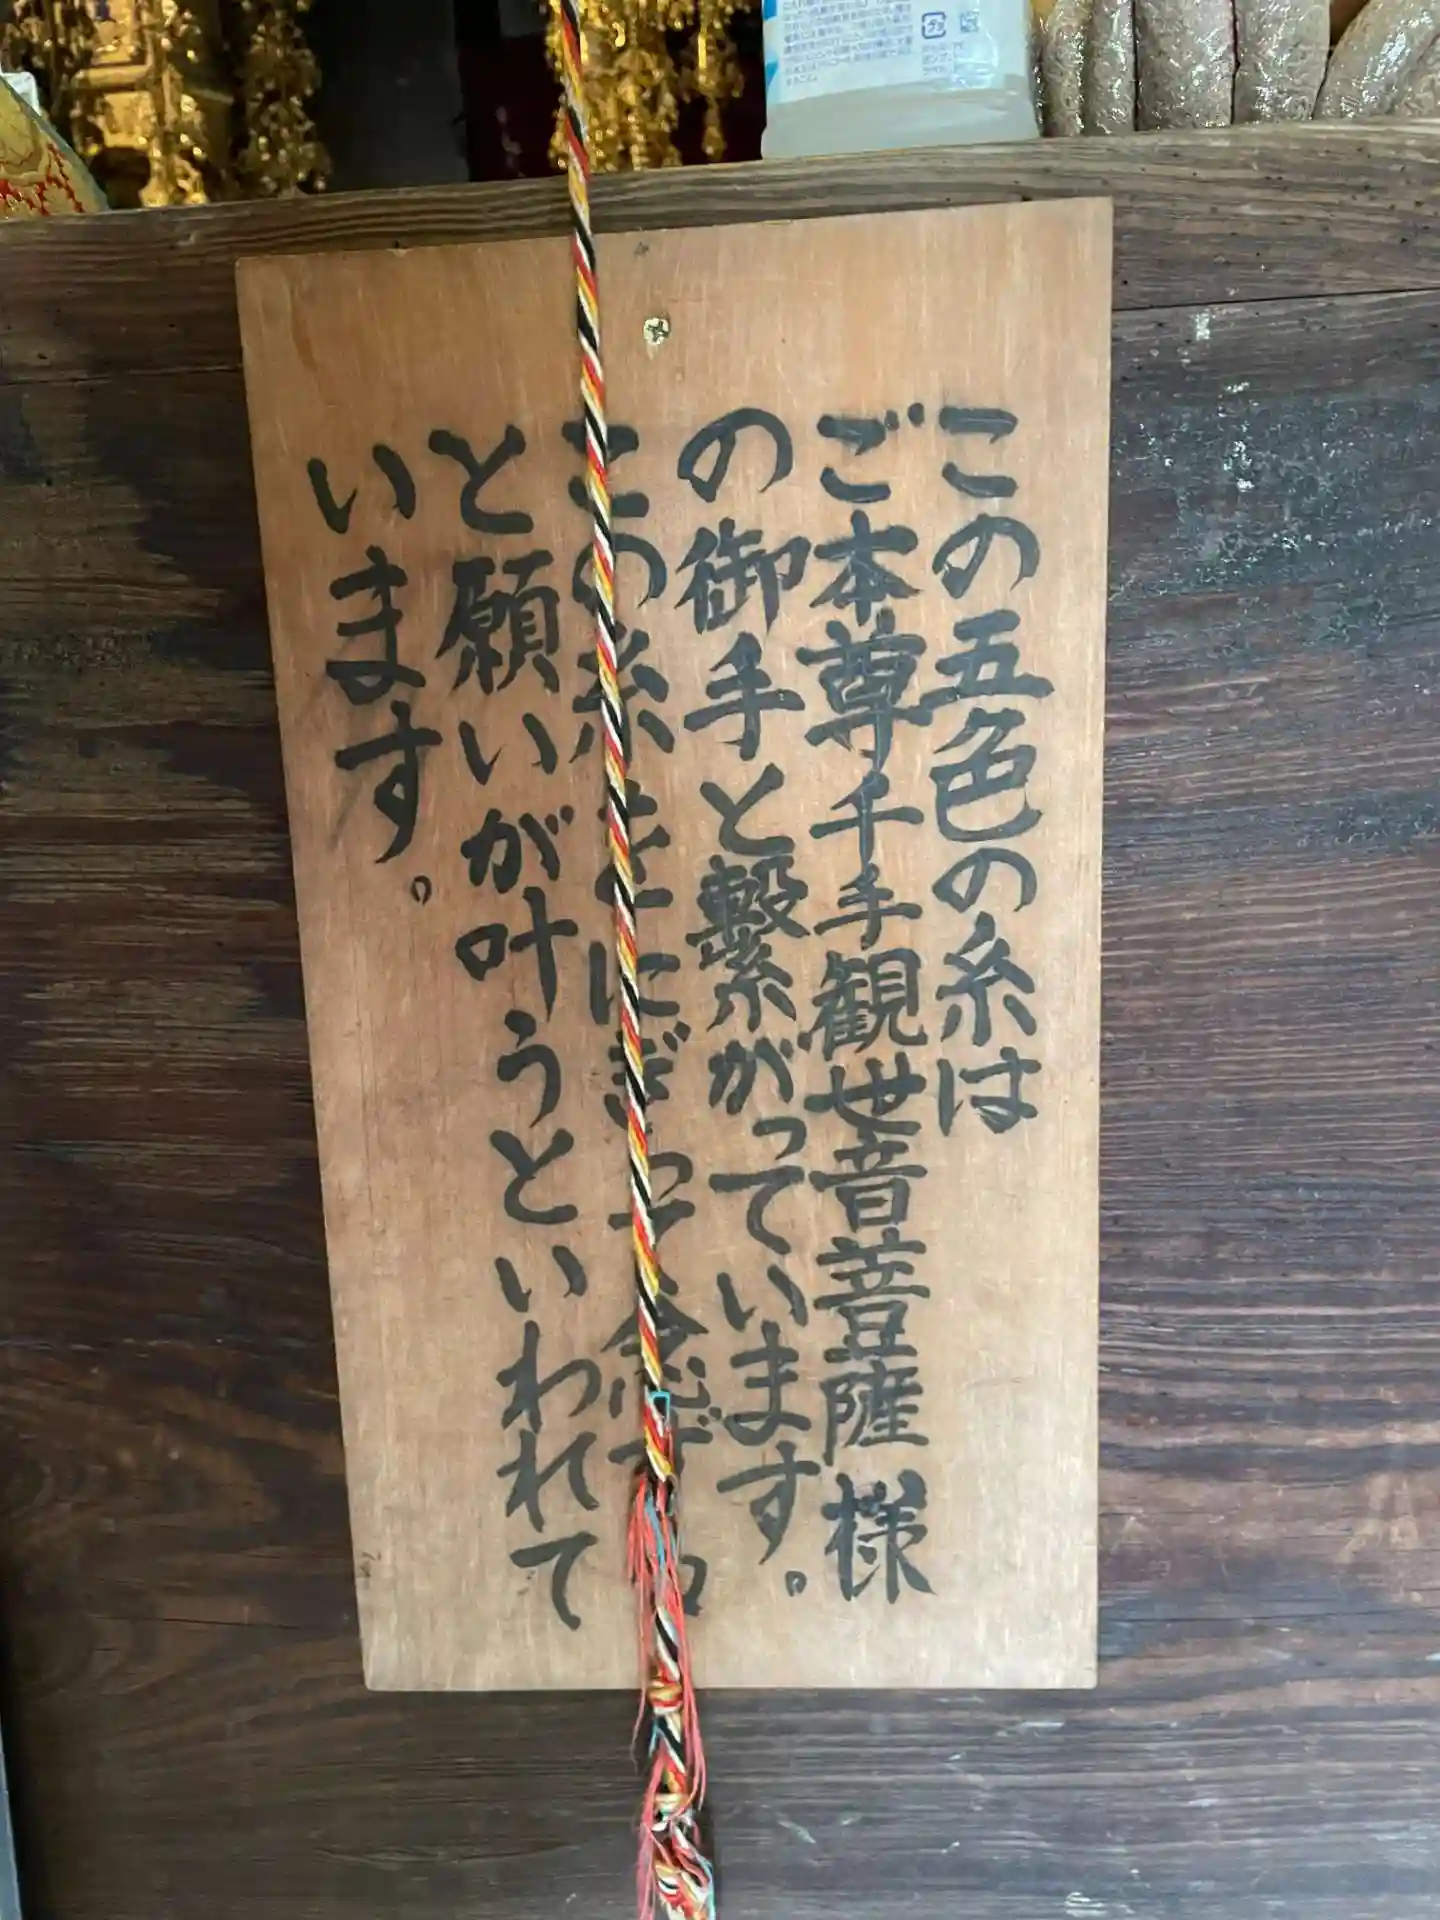 この五色の糸は
ご本尊千手観世音菩薩様
の御手と繋がっています。
この糸をにぎって念ずる
と願いが叶うといわれて
います。